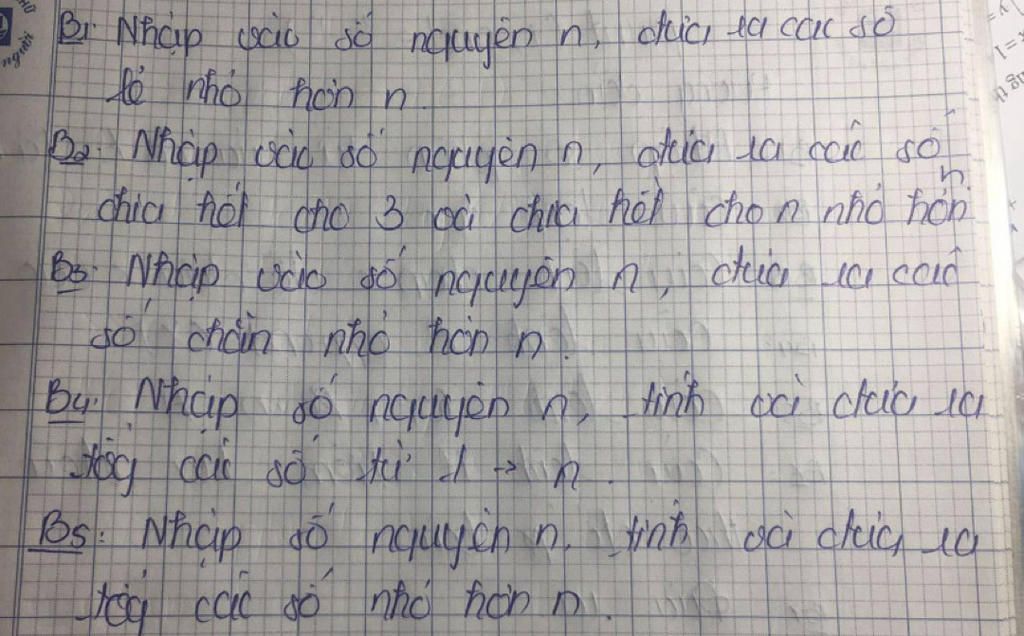 người
B1: Nhập vào số nguyên n, đưa ra các số
lẻ nhỏ hơn n.
B2: Nhập vào số nguyên n, đưa ra các số
chia hết cho 3 và chia hết cho n nhỏ hơn n
B3: Nhập vào số nguyên n, đưa ra các
số chẵn nhỏ hơn n.
B4: Nhập số nguyên n, tính và đưa ra
tổg các số từ 1 → n.
B5: Nhập số nguyên n. tính và đưa ra
tổg các số nhỏ hơn n.